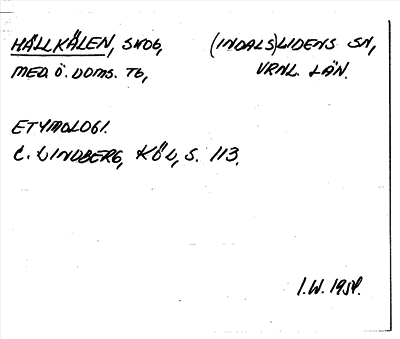 HÄLLKÄLEN, SKOG, (INDALS)LIDENS SN,
MED. Ö. DOMS. TG, VRNL. LÄN.
ETYMOLOGI.
C. LINDBERG, KÖL, S. 113.
I.W. 1954.